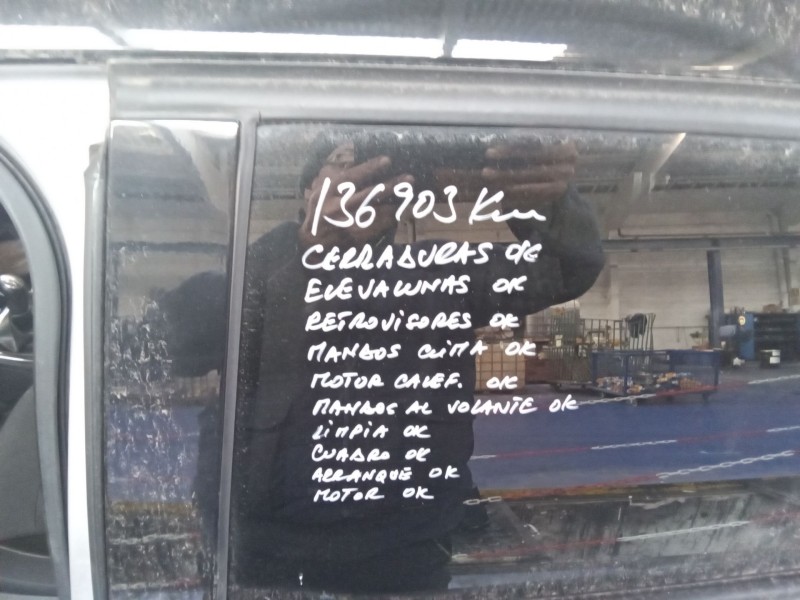 136903 Km
CERRADURAS OK
ELEVALUNAS OK
RETROVISORES OK
MANDOS CLIMA OK
MOTOR CALEF. OK
MANDOS AL VOLANTE OK
LIMPIA OK
CUADRO OK
ARRANQUE OK
MOTOR OK